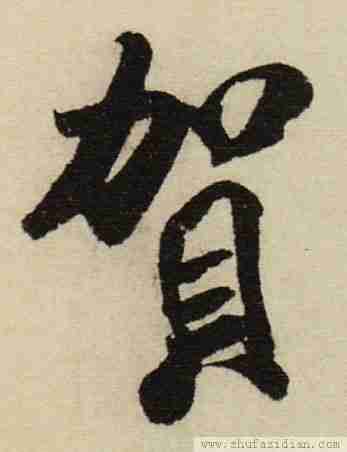 賀
www.shufazidian.com